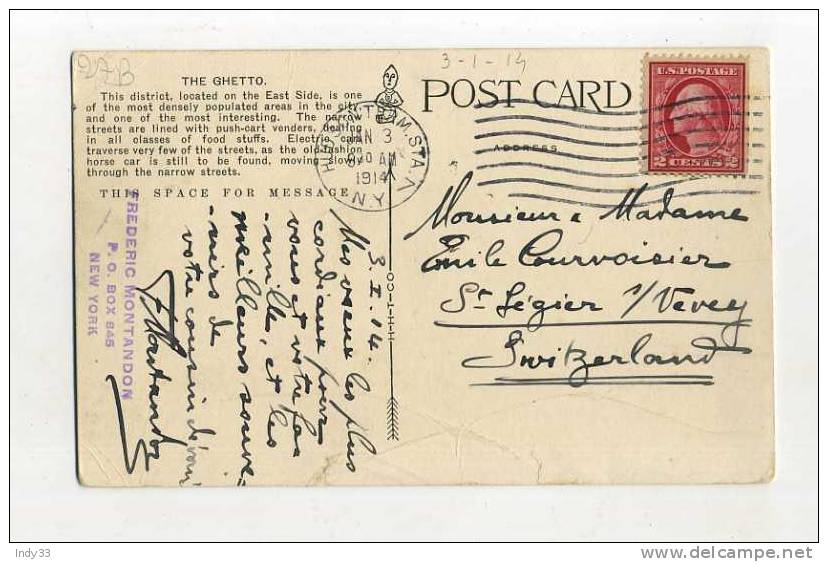 3-1-14
THE GHETTO.
This district, located on the East Side, is one
of the most densely populated areas in the city
and one of the most interesting. The narrow
streets are lined with push-cart venders, dealing
in all classes of food stuffs. Electric cars
traverse very few of the streets, as the old fashion
horse car is still to be found, moving slowly
through the narrow streets.
THIS SPACE FOR MESSAGE
POST CARD
ADDRESS
HUD. TERM. STA.
N.Y.
JAN 3
AM
1914
U.S. POSTAGE
2 CENTS 2
Monsieur & Madame
Emile Courvoisier
St Légier s/Vevey
Switzerland
3. I. 14.
Mes voeux les plus
cordiaux pour
vous et votre fa-
mille, et les
meilleurs souve-
nirs de
votre cousin dévoué
FMontandon
FREDERIC MONTANDON
P. O. BOX 845
NEW YORK
H-H-T-CO.
Indy33
www.delcampe.net